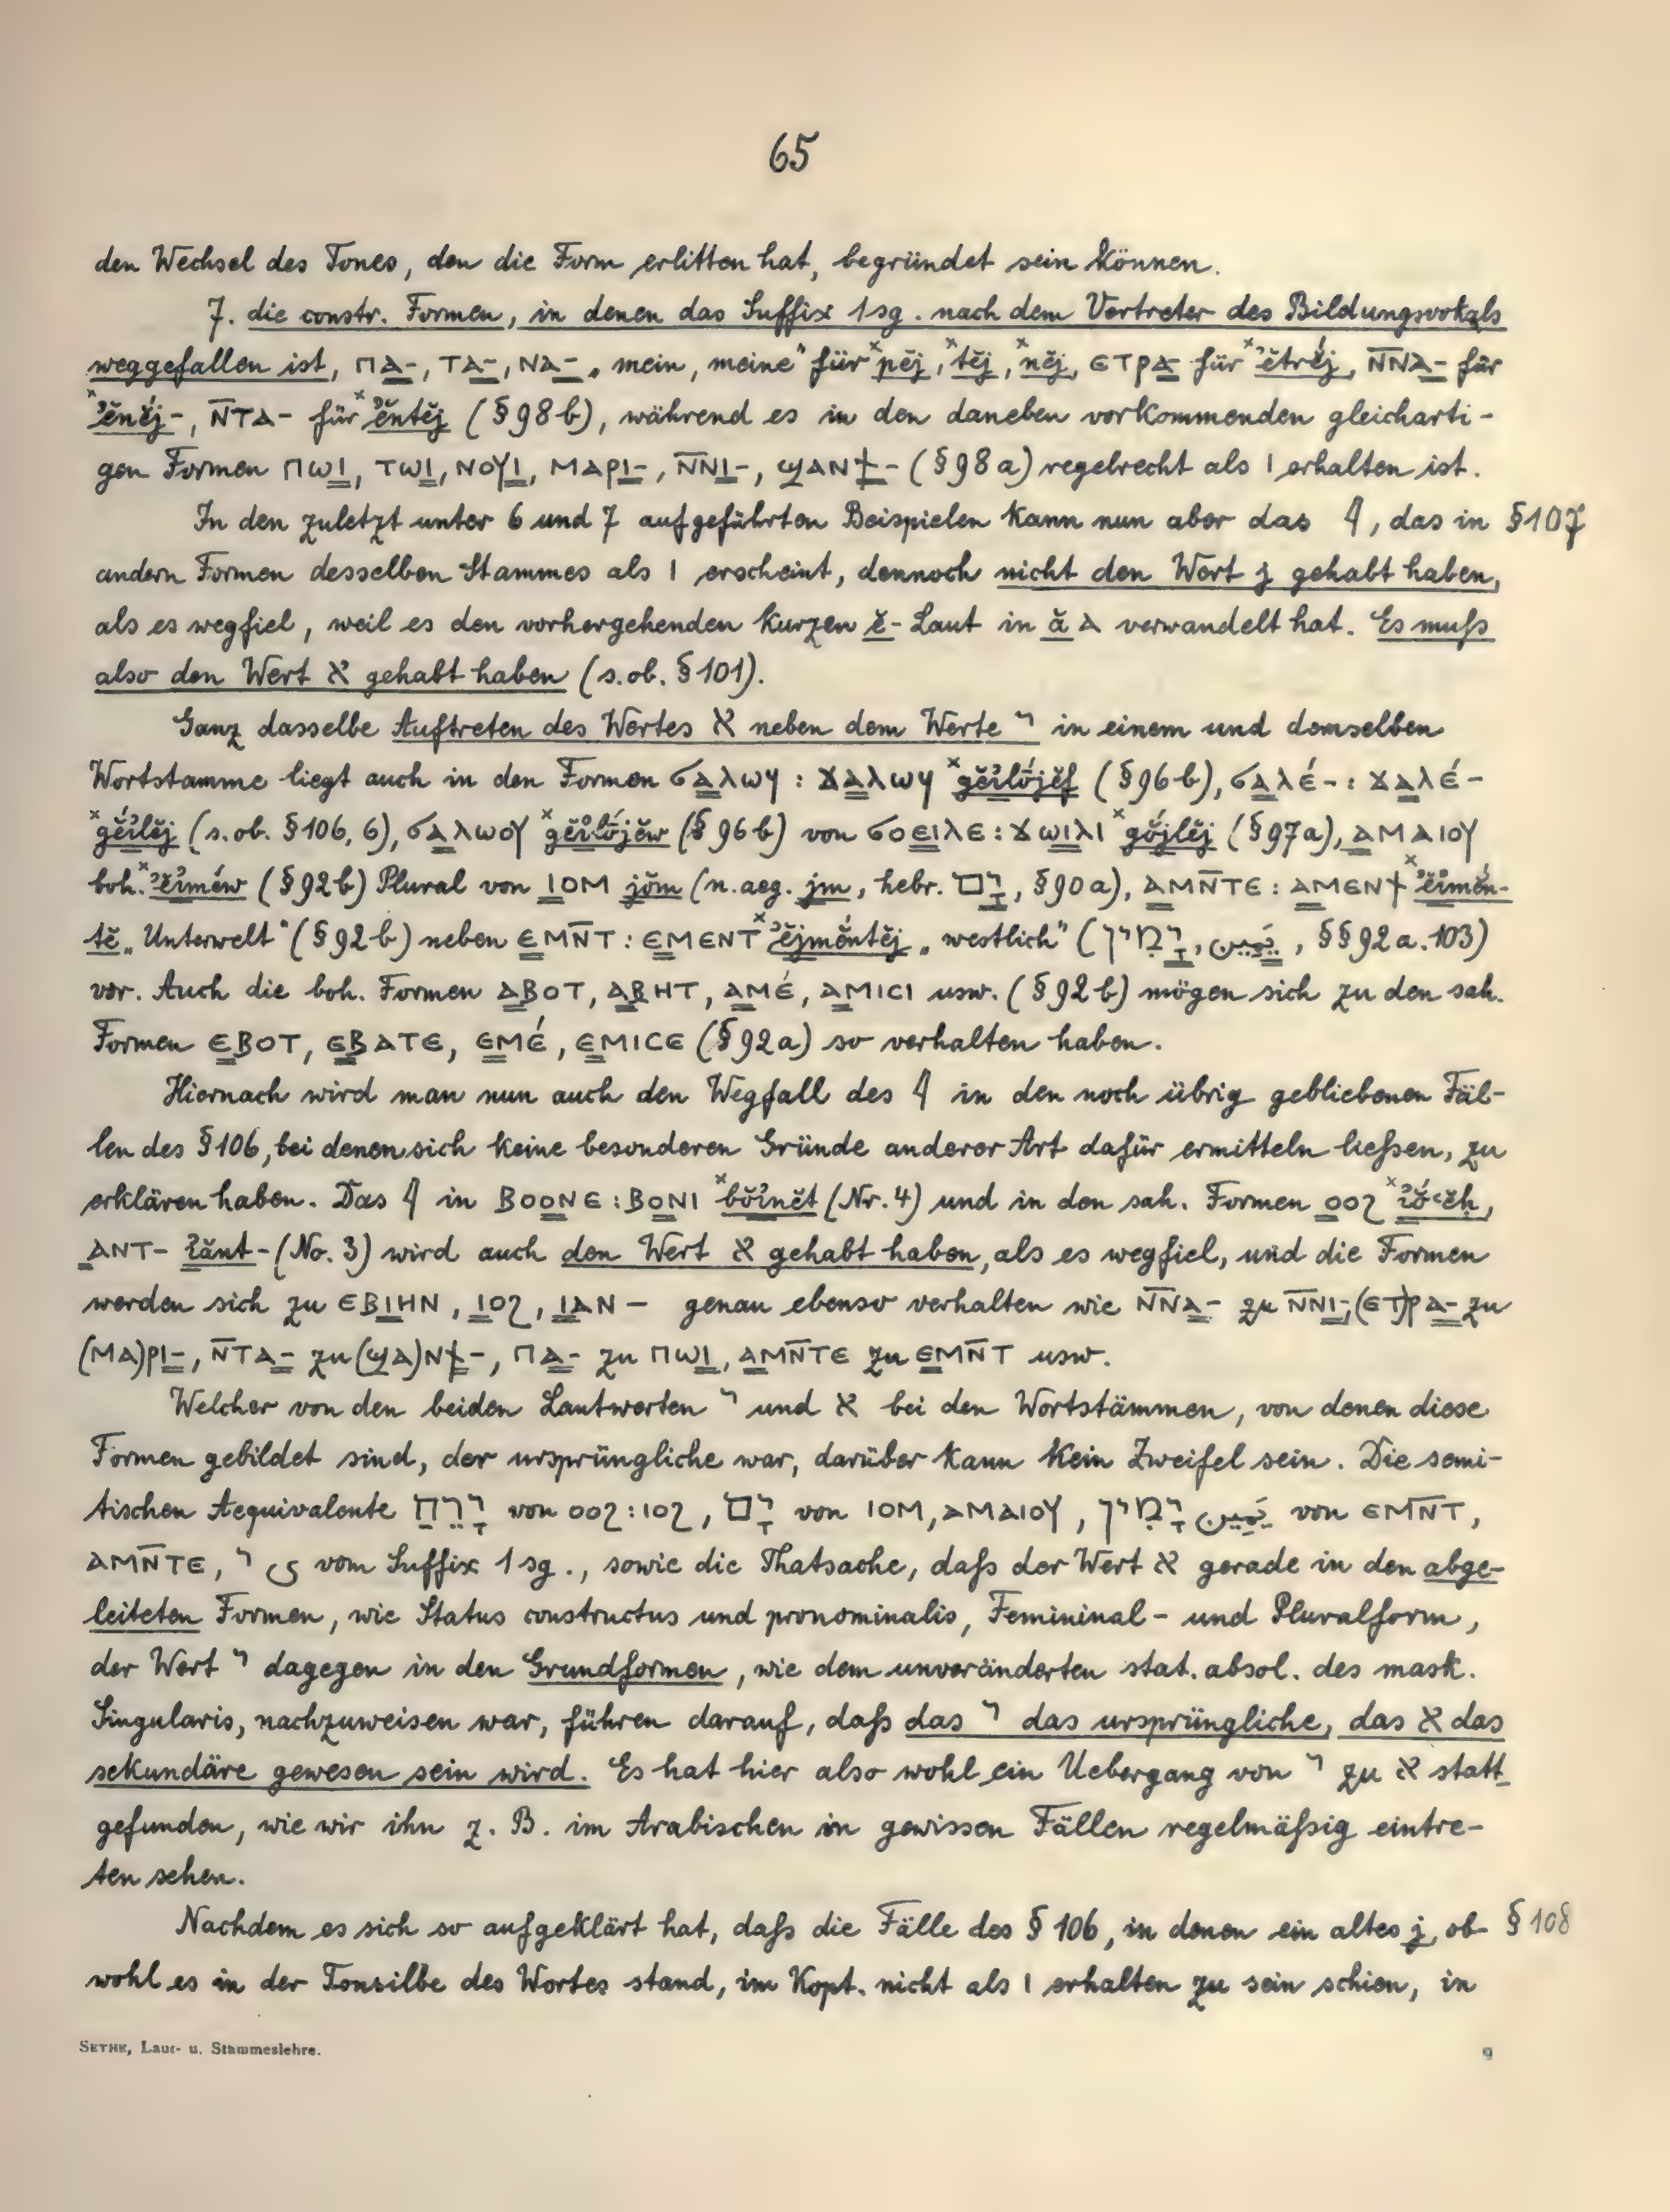 65
den Wechsel des Tones, den die Form erlitten hat, begründet sein können.
7. die constr. Formen, in denen das Suffix 1sg. nach dem Vertreter des Bildungsvokals
weggefallen ist, ⲡⲁ-, ⲧⲁ-, ⲛⲁ- „mein, meine" für ˣpĕj, ˣtĕj, ˣnĕj, ⲉⲧⲣⲁ- für ˣꜣĕtrĕ́j, ⲛ̅ⲛⲁ- für
ˣꜣĕnĕ́j-, ⲛ̅ⲧⲁ- für ˣꜣĕntĕj (§98b), während es in den daneben vorkommenden gleicharti-
gen Formen ⲡⲱⲓ, ⲧⲱⲓ, ⲛⲟⲩⲓ, ⲙⲁⲣⲓ-, ⲛ̅ⲛⲓ-, ϣⲁⲛϯ- (§98a) regelrecht als ⲓ erhalten ist.
In den zuletzt unter 6 und 7 aufgeführten Beispielen kann nun aber das 𓇋, das in §107
andern Formen desselben Stammes als ⲓ erscheint, dennoch nicht den Wert j gehabt haben,
als es wegfiel, weil es den vorhergehenden kurzen ĕ-Laut in ă ⲁ verwandelt hat. Es muß
also den Wert א gehabt haben (s.ob. §101).
Ganz dasselbe Auftreten des Wertes א neben dem Werte י in einem und demselben
Wortstamme liegt auch in den Formen ϭⲁⲗⲱϥ : ϫⲁⲗⲱϥ ˣgĕꜣlṓjĕf (§96b), ϭⲁⲗⲉ́- : ϫⲁⲗⲉ́-
ˣgĕꜣlĕj (s.ob. §106, 6), ϭⲁⲗⲱⲟⲩ ˣgĕꜣlṓjĕw (§96b) von ϭⲟⲉⲓⲗⲉ : ϫⲱⲓⲗⲓ ˣgṓjlĕj (§97a), ⲁⲙⲁⲓⲟⲩ
boh. ˣꜣĕꜣmĕ́w (§92b) Plural von ⲓⲟⲙ jŏm (n.aeg. jm, hebr. יָם, §90a), ⲁⲙⲛ̅ⲧⲉ : ⲁⲙⲉⲛϯ ˣꜣĕꜣmĕ́n-
tĕ „Unterwelt" (§92b) neben ⲉⲙⲛ̅ⲧ : ⲉⲙⲉⲛⲧ ˣꜣĕjmĕ́ntĕj „westlich" (יָמִין, يَمِين, §§92a.103)
vor. Auch die boh. Formen ⲁⲃⲟⲧ, ⲁⲃⲏⲧ, ⲁⲙⲉ́, ⲁⲙⲓⲥⲓ usw. (§92b) mögen sich zu den sah.
Formen ⲉⲃⲟⲧ, ⲉⲃⲁⲧⲉ, ⲉⲙⲉ́, ⲉⲙⲓⲥⲉ (§92a) so verhalten haben.
Hiernach wird man nun auch den Wegfall des 𓇋 in den noch übrig gebliebenen Fäl-
len des §106, bei denen sich keine besonderen Gründe anderer Art dafür ermitteln ließen, zu
erklären haben. Das 𓇋 in ⲃⲟⲟⲛⲉ : ⲃⲟⲛⲓ ˣbŏꜣnĕt (Nr. 4) und in den sah. Formen ⲟⲟϩ ˣꜣŏꜥĕḥ,
ⲁⲛⲧ- ꜣănt- (No. 3) wird auch den Wert א gehabt haben, als es wegfiel, und die Formen
werden sich zu ⲉⲃⲓⲏⲛ, ⲓⲟϩ, ⲓⲁⲛ- genau ebenso verhalten wie ⲛ̅ⲛⲁ- zu ⲛ̅ⲛⲓ-, (ⲉⲧ)ⲣⲁ- zu
(ⲙⲁ)ⲣⲓ-, ⲛ̅ⲧⲁ- zu (ϣⲁ)ⲛϯ-, ⲡⲁ- zu ⲡⲱⲓ, ⲁⲙⲛ̅ⲧⲉ zu ⲉⲙⲛ̅ⲧ usw.
Welcher von den beiden Lautwerten י und א bei den Wortstämmen, von denen diese
Formen gebildet sind, der ursprüngliche war, darüber kann kein Zweifel sein. Die semi-
tischen Aequivalente יָרֵחַ von ⲟⲟϩ : ⲓⲟϩ, יָם von ⲓⲟⲙ, ⲁⲙⲁⲓⲟⲩ, יָמִין يَمِين von ⲉⲙⲛ̅ⲧ,
ⲁⲙⲛ̅ⲧⲉ, י ى vom Suffix 1sg., sowie die Thatsache, daß der Wert א gerade in den abge-
leiteten Formen, wie Status constructus und pronominalis, Femininal- und Pluralform,
der Wert י dagegen in den Grundformen, wie dem unveränderten stat. absol. des mask.
Singularis, nachzuweisen war, führen darauf, daß das י das ursprüngliche, das א das
sekundäre gewesen sein wird. Es hat hier also wohl ein Uebergang von י zu א statt
gefunden, wie wir ihn z. B. im Arabischen in gewissen Fällen regelmäßig eintre-
ten sehen.
Nachdem es sich so aufgeklärt hat, daß die Fälle des §106, in denen ein altes j, ob- §108
wohl es in der Tonsilbe des Wortes stand, im Kopt. nicht als ⲓ erhalten zu sein schien, in
SETHE, Laut- u. Stammeslehre. 9